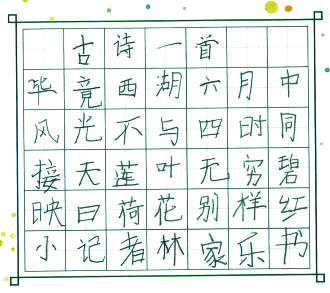 古诗一首
毕竟西湖六月中
风光不与四时同
接天莲叶无穷碧
映日荷花别样红
小记者林家乐书